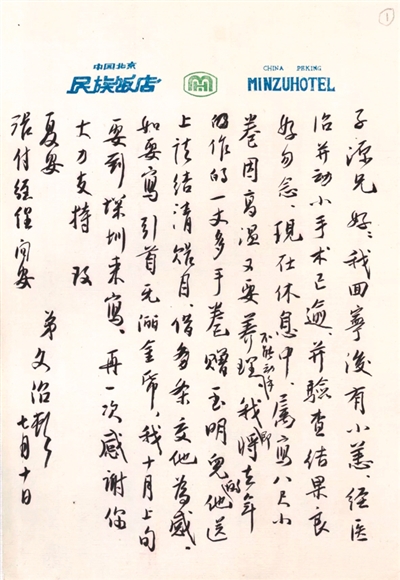 1
中国北京
民族饭店
CHINA PEKING
MINZUHOTEL
子源兄好、我回寧後有小恙、经医
治并动小手术已逾、并驗查结果良
好勿念、现在休息中、属寫八尺小
卷因高温又要养理不能动手、我即将去年
作的一丈多手卷赠玉明兄的他送
上该结清账目、借条交他为感、
如要寫引首无洒金帋、我十月上旬
要到深圳来寫、再一次感谢你
大力支持 致
夏安
张付经理问安
弟 文治
七月十日